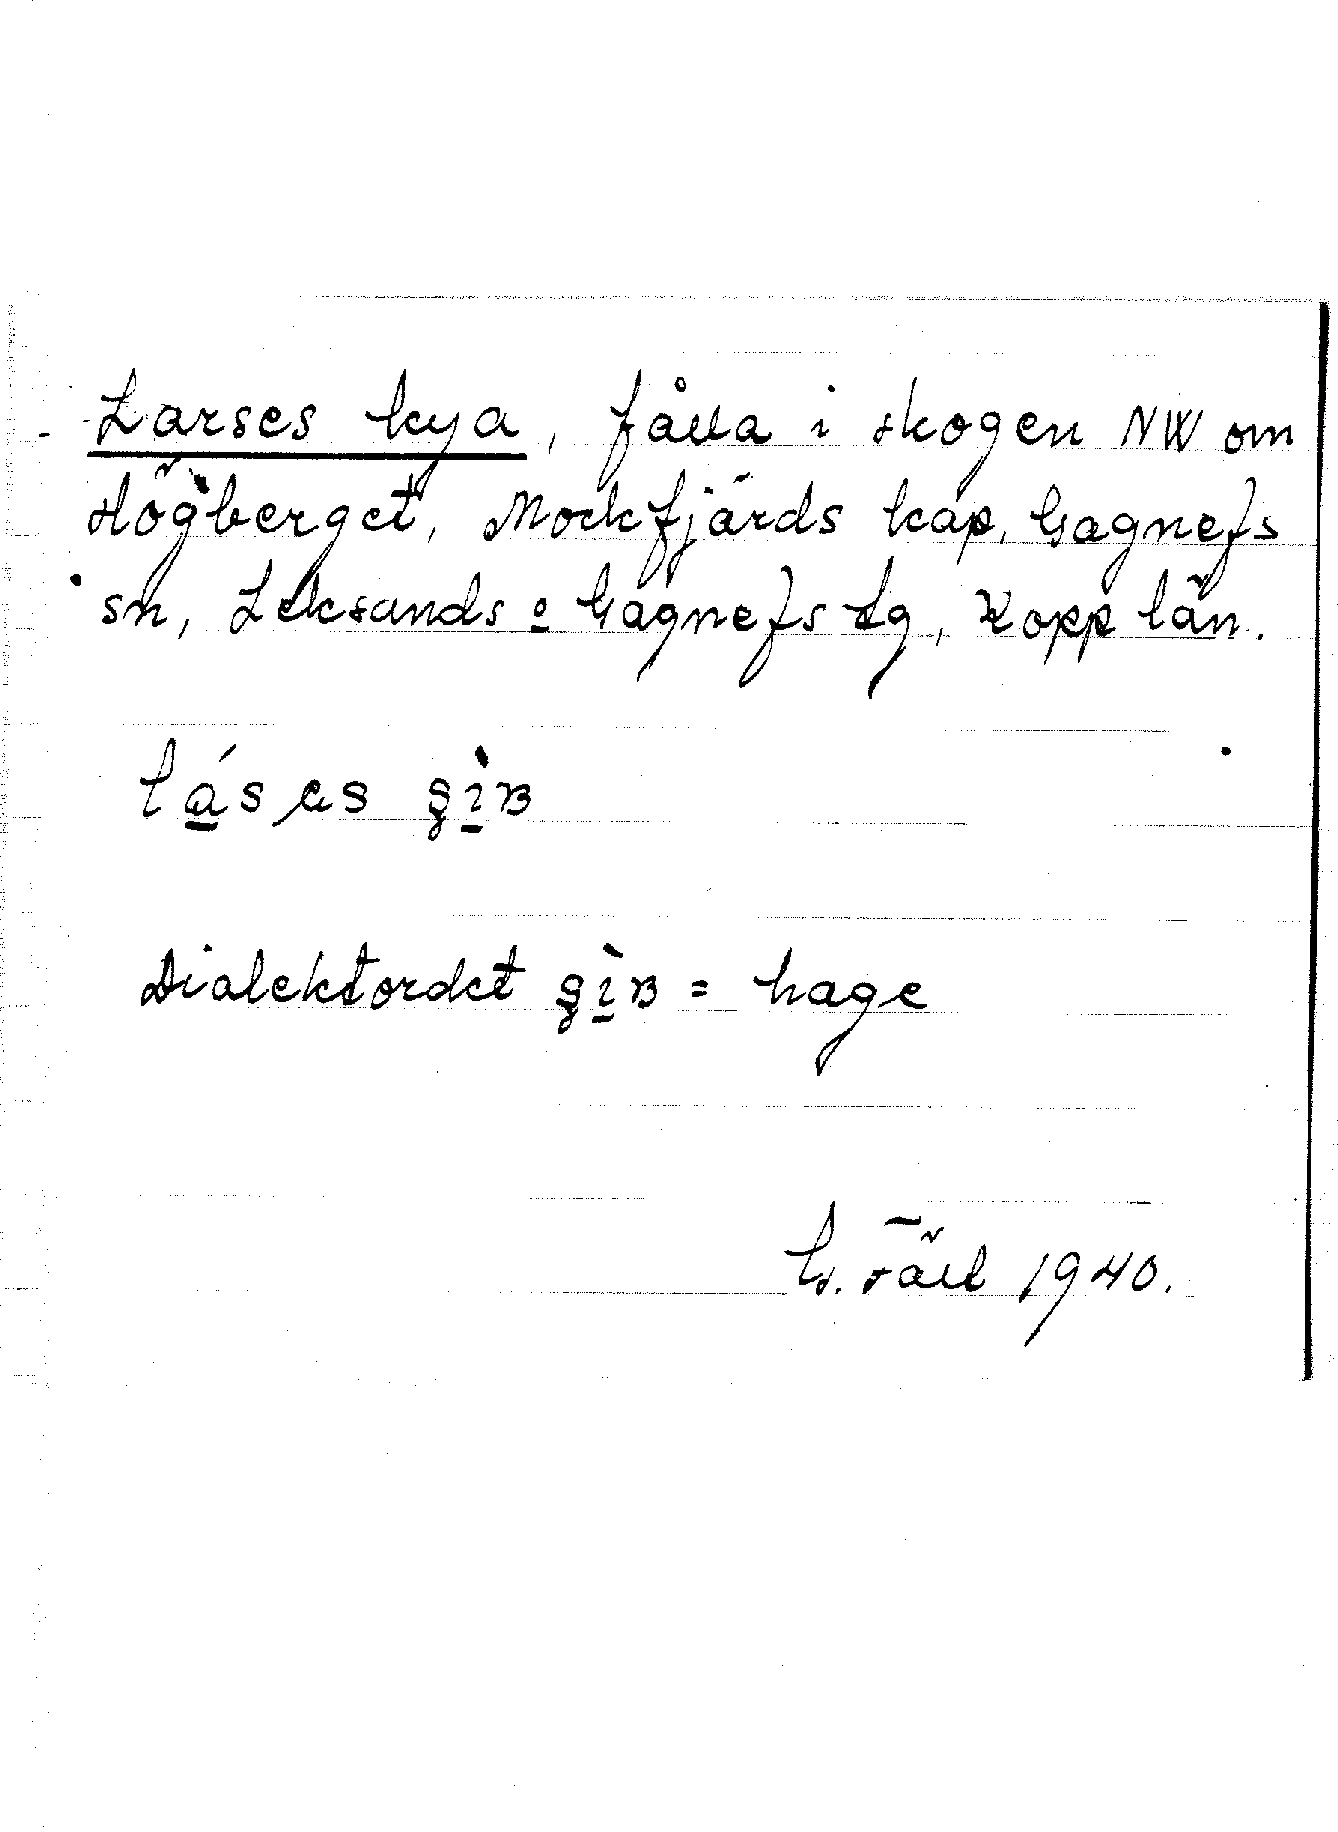 Larses kya, fålla i skogen NW om
Högberget, Mockfjärds kap, Gagnefs
sn, Leksands o Gagnefs tg, Kopp län.
Dialektordet = hage
G. Täll 1940.